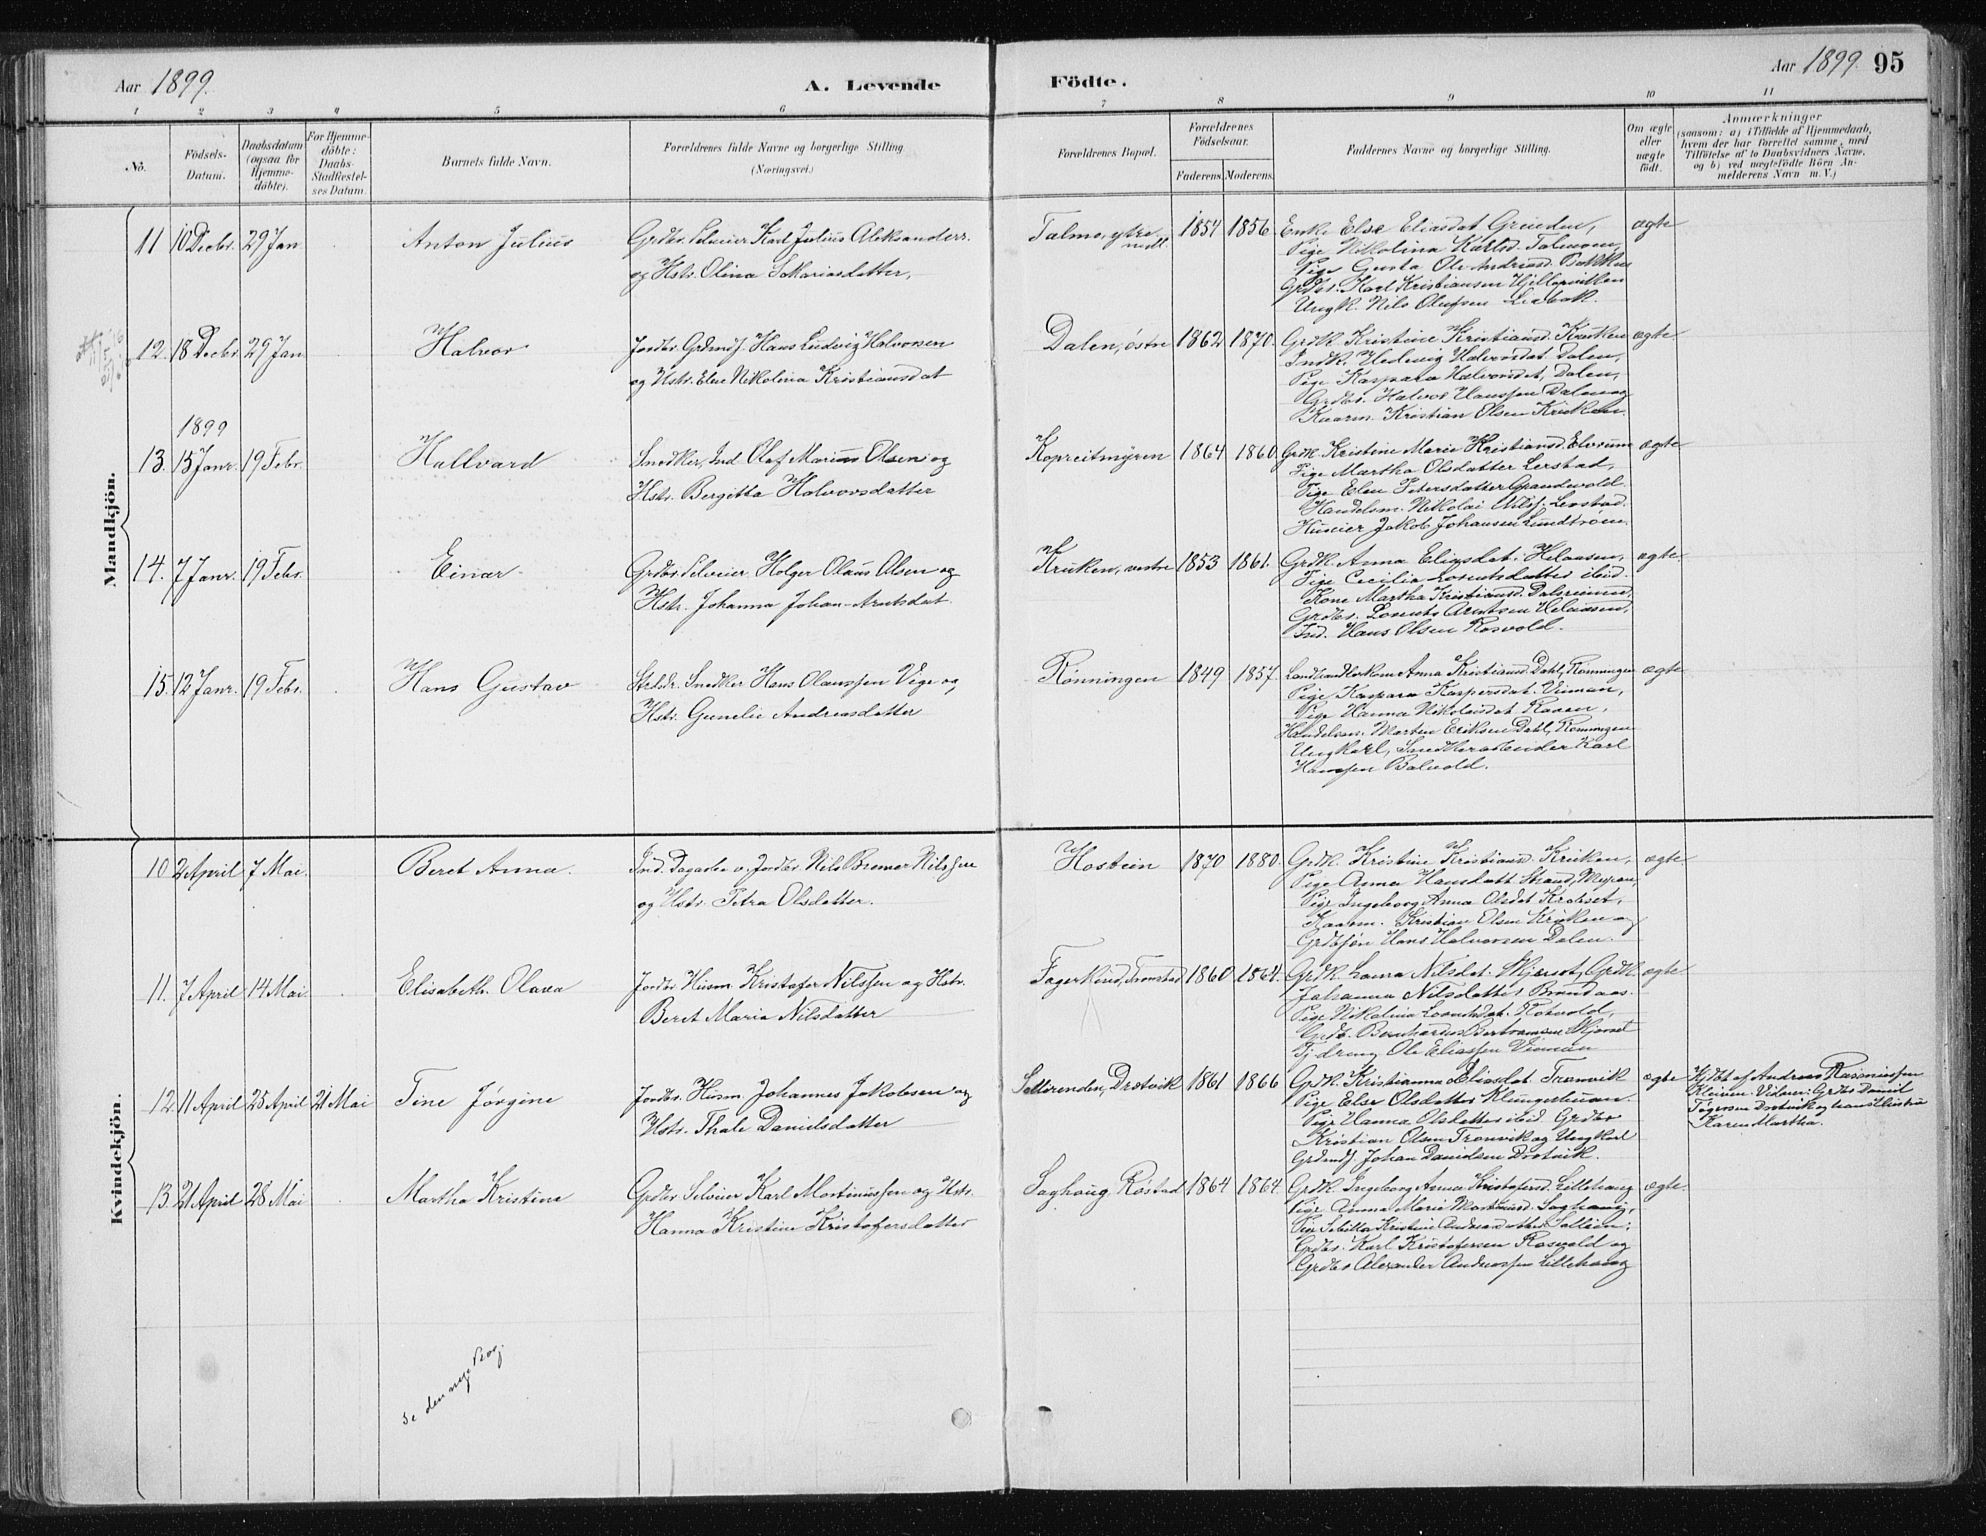 Aar 1899.
A. Levende
Födte.
Aar 1899. 95
1 2 3 4 5 6 7 8 9 10 11
No.
Födsels-
Datum.
Daabsdatum
(ogsaa for
Hjemme-
döbte).
For Hjemme-
döbte:
Daabs-
Stadfæstel-
ses Datum.
Barnets fulde Navn.
Forældrenes fulde Navne og borgerlige Stilling
(Næringsvei.)
Forældrenes Bopæl.
Forældrenes
Födselsaar.
Faderens. Moderens.
Faddernes Navne og borgerlige Stilling.
Om ægte
eller
uægte
født.
Anmærkninger
(saasom: a) i Tilfælde af Hjemmedaab,
hvem der har forrettet samme, med
Tilföielse af to Daabsvidners Navne,
og b) ved uægtefödte Börn An-
melderens Navn m. V.)
Mandkjön.
11 10 Decbr. 29 Jan
Anton Julius
Grdbr. Selveier Karl Julius Aleksanders.
og Hstr. Olina Sakariasdatter.
Talmo, ytre
nedl
1854 1856.
Enke Else Eliasdat Grinden,
Pige Nikolina Karlsd. Talmoen,
Pige Gusta Ole Andreasd. Bakken
Grdbr. Karl Kristiansen Hjellupvikken
Ungk. Nils Olufsen Leebak.
ægte
12. 18 Decbr 29 Jan
Halvor
Jordbr. Grdmdf. Hans Ludvig Halvorsen
og Hstr. Else Nikolina Kristiansdat
Dalen, östre
1862 1870.
Grdk. Kristine Kristiansd. Kruken
Indk. Hedevig Halvorsdat Dalen,
Pige Kaspara Halvorsdat, Dalen,
Grdbr. Halvor Hanssen Dalen og
Kaarm. Kristian Olsen Kruken.
ægte
1899
13. 15 Janr. 19 Febr.
Hallvard
Snedker, Ind Olaf Marius Olsen og
Hstr. Bergitta Halvorsdatter
Kopreitmyren
1864 1860.
Grdk Kristine Marie Kristiansd. Elvrum
Pige Martha Olsdatter Lerstad,
Pige Elen Petersdatter Grandevold.
Handelsm. Nikolai Nilss. Lerstad.
Huseier Jakob Johansen Lundström.
ægte
14. 7 Janr. 19 Febr.
Einar
Grdbr. Selveier Holger Olaus Olsen og
Hstr. Johanna Johan-Arntsdat.
Kruken, vestre
1853 1861.
Grdk. Anna Eliasdat. Helaasen,
Pige Cecilia Lorentsdatter ibid.
Kone Martha Kristiansd. Dalsreinen,
Grdbr. Lorents Arntsen Helaasen,
Ind. Hans Olsen Rosvold.
ægte.
15. 12 Janr. 19 Febr.
Hans Gustav
Strdsdr. Snedker Hans Olaussen Vige og
Hstr. Gunelie Andreasdatter
Rönningen
1849 1857.
Landhandlerkone Anna Kristiansd Dahl, Rønningen
Pige Kaspara Kaspersdat. Vinnan,
Pige Hanna Nikolaisdat Raaen,
Handelsm. Morten Eriksen Dahl, Rønningen
Ungkarl, Snedkerarbeider Karl
Hanssen Balvold.
ægte
Kvindekjön.
10. 2 April 7 Mai
Beret Anna.
Ind. Dagarb. o. Jordbr. Nils Bremer Nilssen
og Hstr. Petra Olsdatter.
Hostein
1870 1880.
Grdk. Kristine Kristiansd. Kruken,
Pige Anna Hansdatt Strand, Mosvan,
Pige Ingeborg Anna Olsdat Krokset,
Kaarm. Kristian Olsen Kruken og
Grdbsön Hans Halvorsen Dalen.
ægte
11. 7 April 14 Mai
Elisabeth Olava
Jordbr. Husm. Kristofer Nilssen og Hstr.
Beret Maria Nilsdatter
Fagerlund, Tronstad
1860 1864.
Grdk. Laura Nilsdat. Skjervet, Grdk.
Johanna Nilsdatter Brandaas.
Pige Nikolina Lorntsdat. Rosvold,
Grdb. Bernhardus Bertramsen Skjervet
Tj. dreng Ole Eliassen Vinnan
ægte
12. 11 April 23 April 21 Mai
Tine Jørgine
Jordbr. Husm. Johannes Jakobsen og
Hstr. Thale Danielsdatter
Selterenden, Dratvik
1861 1866
Grdk. Kristianna Eliasdat Tronvik
Pige Else Olsdatter Klungerhuan.
Pige Hanna Olsdatter ibid. Grdbr
Kristian Olsen Tronvik og Ungkarl
Grdmdf. Johan Danielsen Dratvik.
ægte
Hjdøbt af Andreas Rasmussen
Kleiven. Vidner: Grdbr Daniel
Fagersen Dratvik og hans Hustru
Karen Martha.
13. 21 April 28 Mai
Martha Kristine
Grdbr Selveier Karl Mortinussen og Hstr.
Hanna Kristine Kristofersdatter
Saghaug Røstad
1864 1864.
Grdk. Ingeborg Anna Kristofersd. Lillehaug
Pige Anna Marie Mortinusd. Saghaug,
Grdbr. Karl Kristofersen Rosvold og
Grdbr Alexander Andreassen Lillehaug
ægte.
Se den nye Bog.